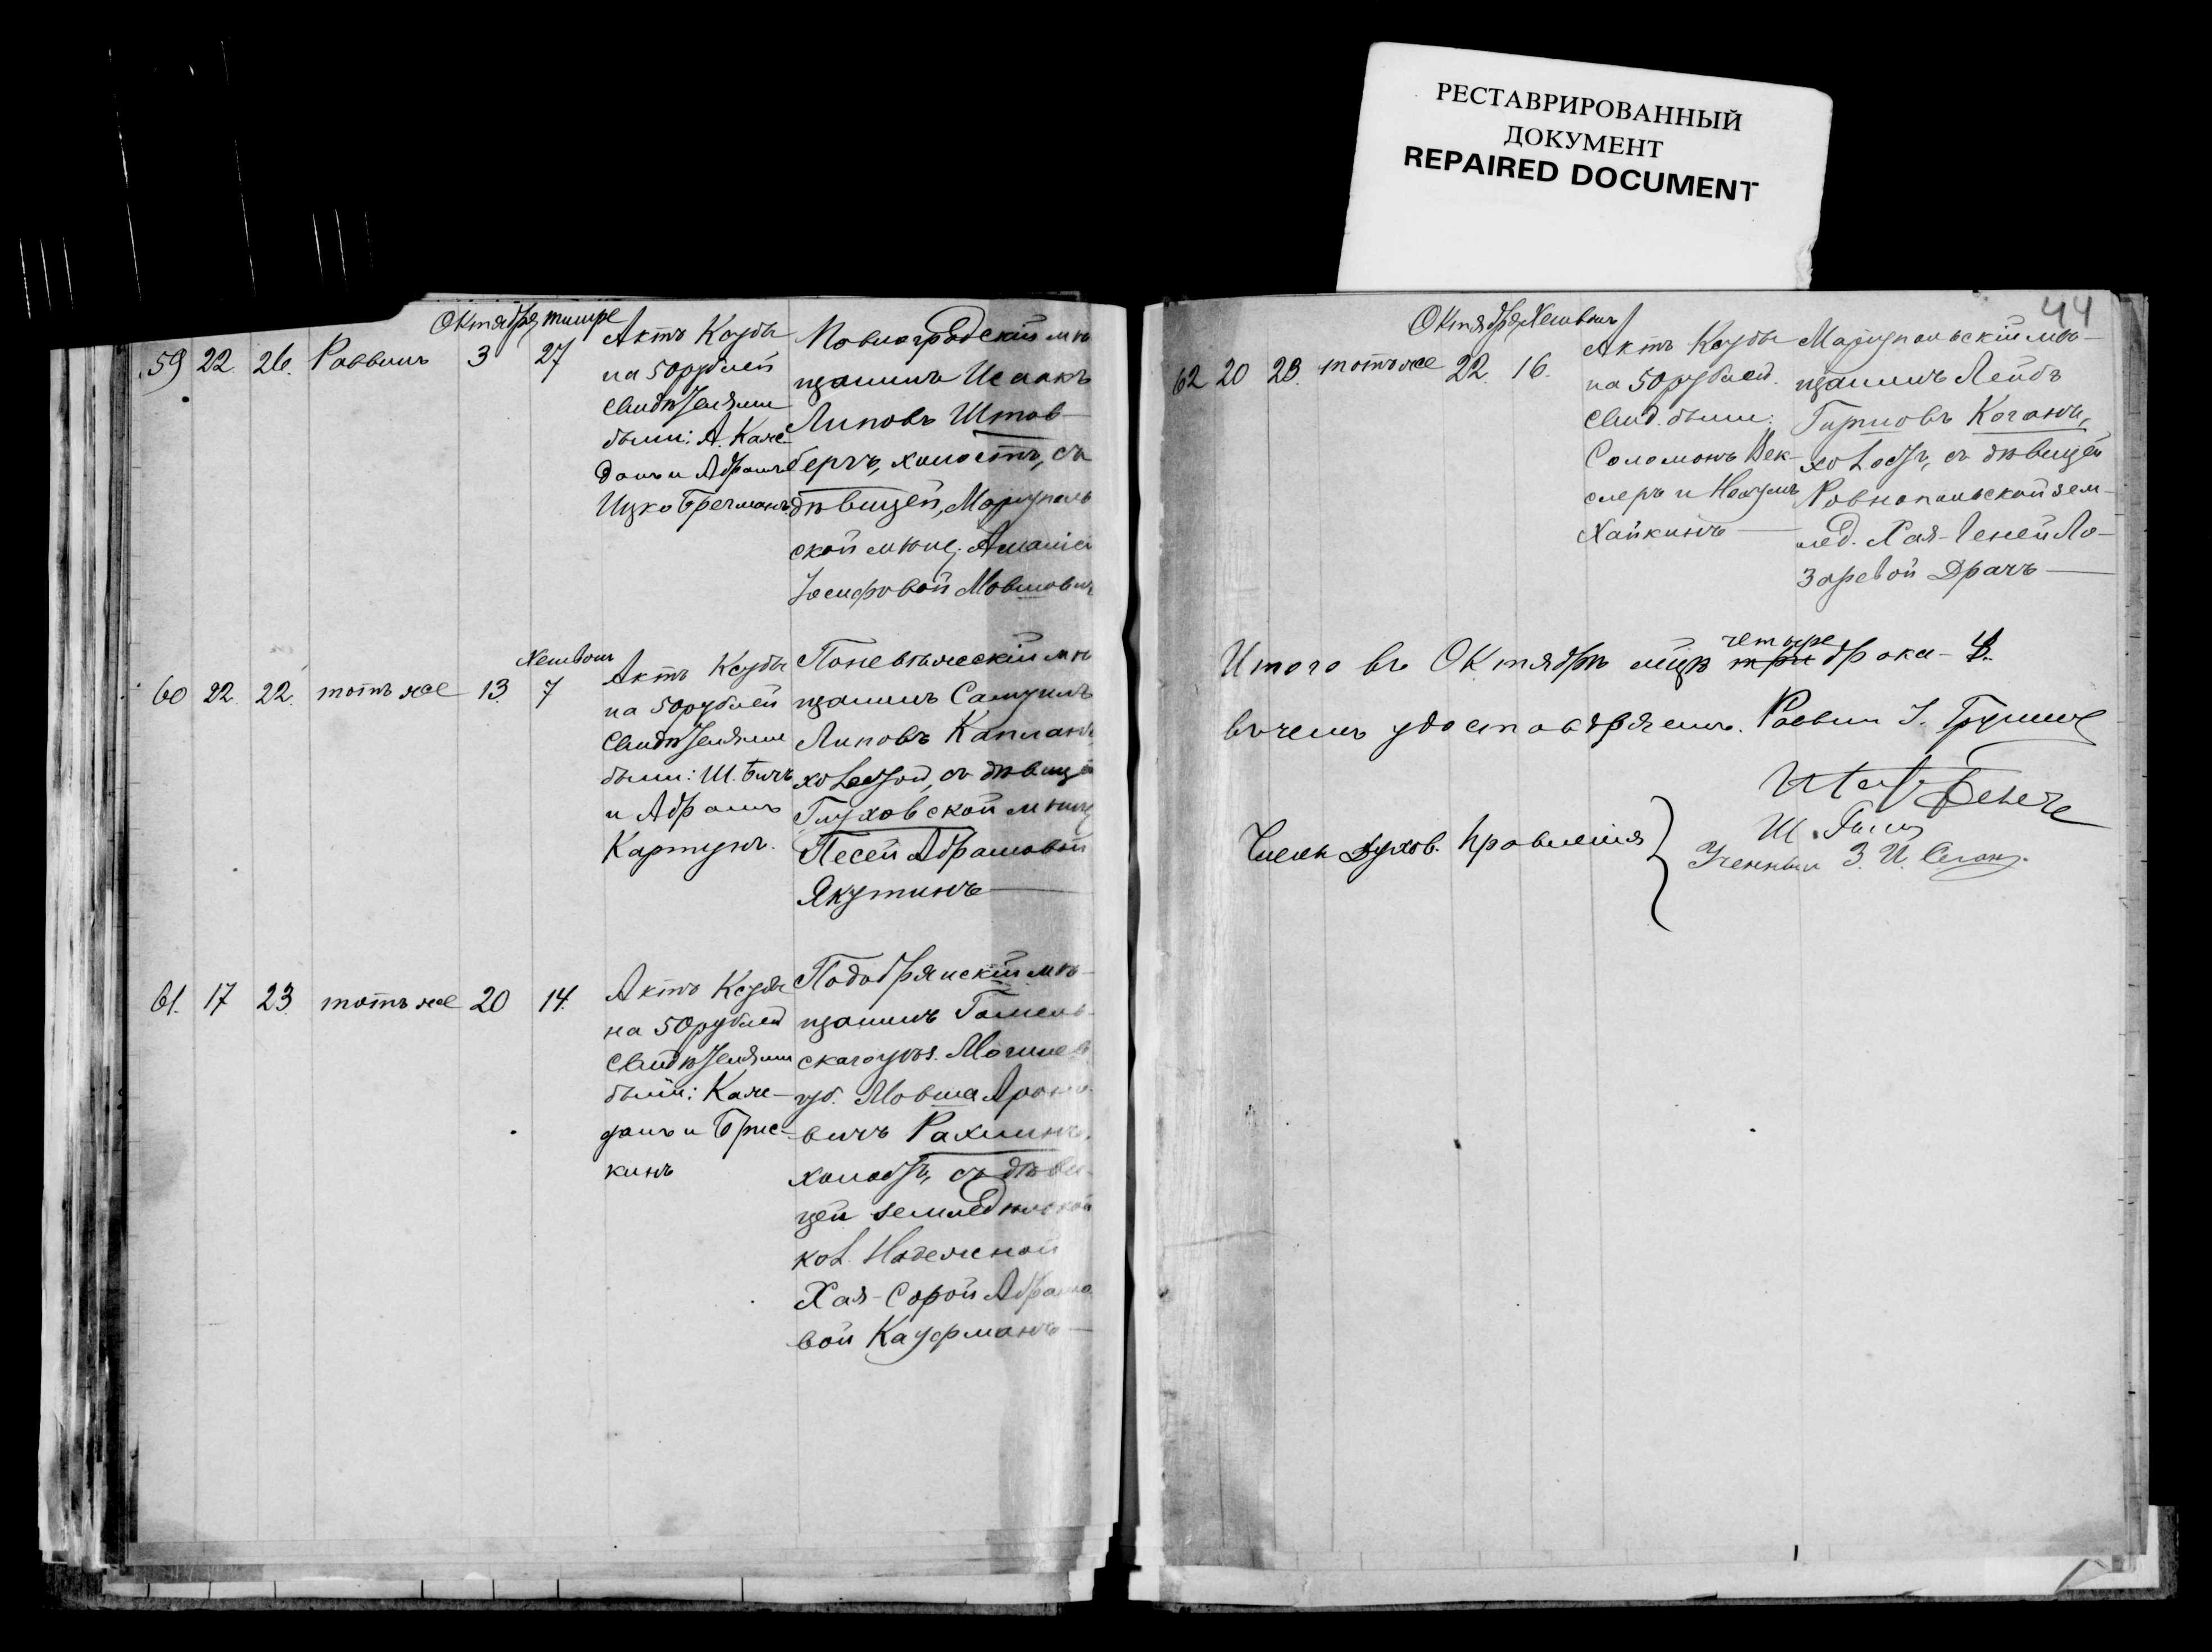 РЕСТАВРИРОВАННЫЙ
ДОКУМЕНТ
REPAIRED DOCUMENT
Октября тишре
59 22. 26. Раввинъ 3 27
Актъ Ксубы
на 50 рублей
свидѣтелями
были: А. Каже-
данъ и Абрамъ
Ицко Бречманъ
Новоградскій мѣ
щанинъ Исаакъ
Липовъ Штов-
бергъ, холостъ, съ
дѣвицей, Маріуполь
ской мѣщ.
Іосифовой Мовшовичъ
Хешвонъ
60 22. 22. тотъ же 13. 7
Актъ Ксубы
на 50 рублей
свидѣтелями
были: Ш. Бичъ
и Абрамъ
Картунъ.
Поневѣжескій мѣ
щанинъ Самуилъ
Липовъ Капланъ
холостой, съ дѣвицей
Глуховской мѣщ
Песей Абрамовой
Якутинъ
61. 17 23. тотъ же 20 14.
Актъ Ксубы
на 50 рублей
свидѣтелями
были: Каже-
данъ и Брис-
кинъ
Подобрянскій мѣ-
щанинъ Гомель-
скаго уѣз. Могилев
губ. Мовша Ароно-
вичъ Рахлинъ,
холостъ, съ дѣви-
цей землед
кол. Надежной
Хая-Сорой Абрамо
вой Кауфманъ
44
Октября Хешвонъ
62 20 23. тотъ же 22. 16.
Актъ Ксубы
на 50 рублей.
Свид. были:
Соломонъ Век-
слеръ и Нахумъ
Хайкинъ
Маріупольскій мѣ-
щанинъ Лейбъ
Гиршовъ Коганъ,
холостъ, съ дѣвицей
Ровнопольской зем-
лед. Хая-Геней Ла-
заревой Драчъ
Итого въ Октябрѣ мцѣ четыре три брака - 4.
въ чемъ удостовѣряемъ. Раввин
Члены духов. правленія
Ученный З. И.